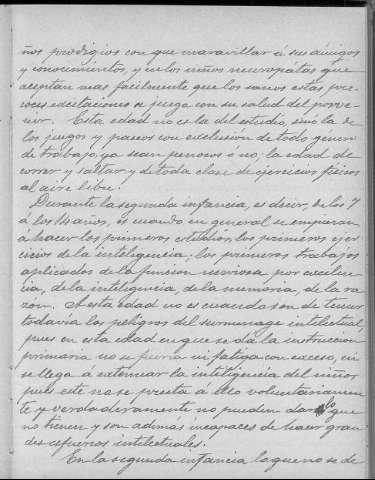 ños prodigios con que maravillar á sus amigos
y conocimientos, y en los niños neuropátas que
aceptan mas facilmente que los sanos estas pre-
coces excitaciones se juega con su salud del porve-
nir. Esta edad no es la del estudio, sinó la de
los juegos y paseos con exclusión de todo género
de trabajo, ya sean penosos ó no; la edad de
correr y saltar y de toda clase de ejercicios físicos
al aire libre.
Durante la segunda infancia, es decir, de los 7
á los 14 años, es cuando en general se empiezan
á hacer los primeros estudios, los primeros ejer-
cicios de la inteligencia; los primeros trabajos
aplicados de la funcion nerviosa por excelen-
cia, de la inteligencia, de la memoria, de la ra-
zón. A esta edad no es cuando son de temer
todavía los peligros del surmenage intelectual,
pues en esta edad en que se dá la instruccion
primaria no se fuerza ni fatiga con exceso, ni
se llega á extenuar la inteligencia del niño
pues este no se presta á ello voluntariamen-
te y verdaderamente no pueden dar lo que
no tienen y son además incapaces de hacer gran-
des esfuerzos intelectuales.
En la segunda infancia lo que no se de